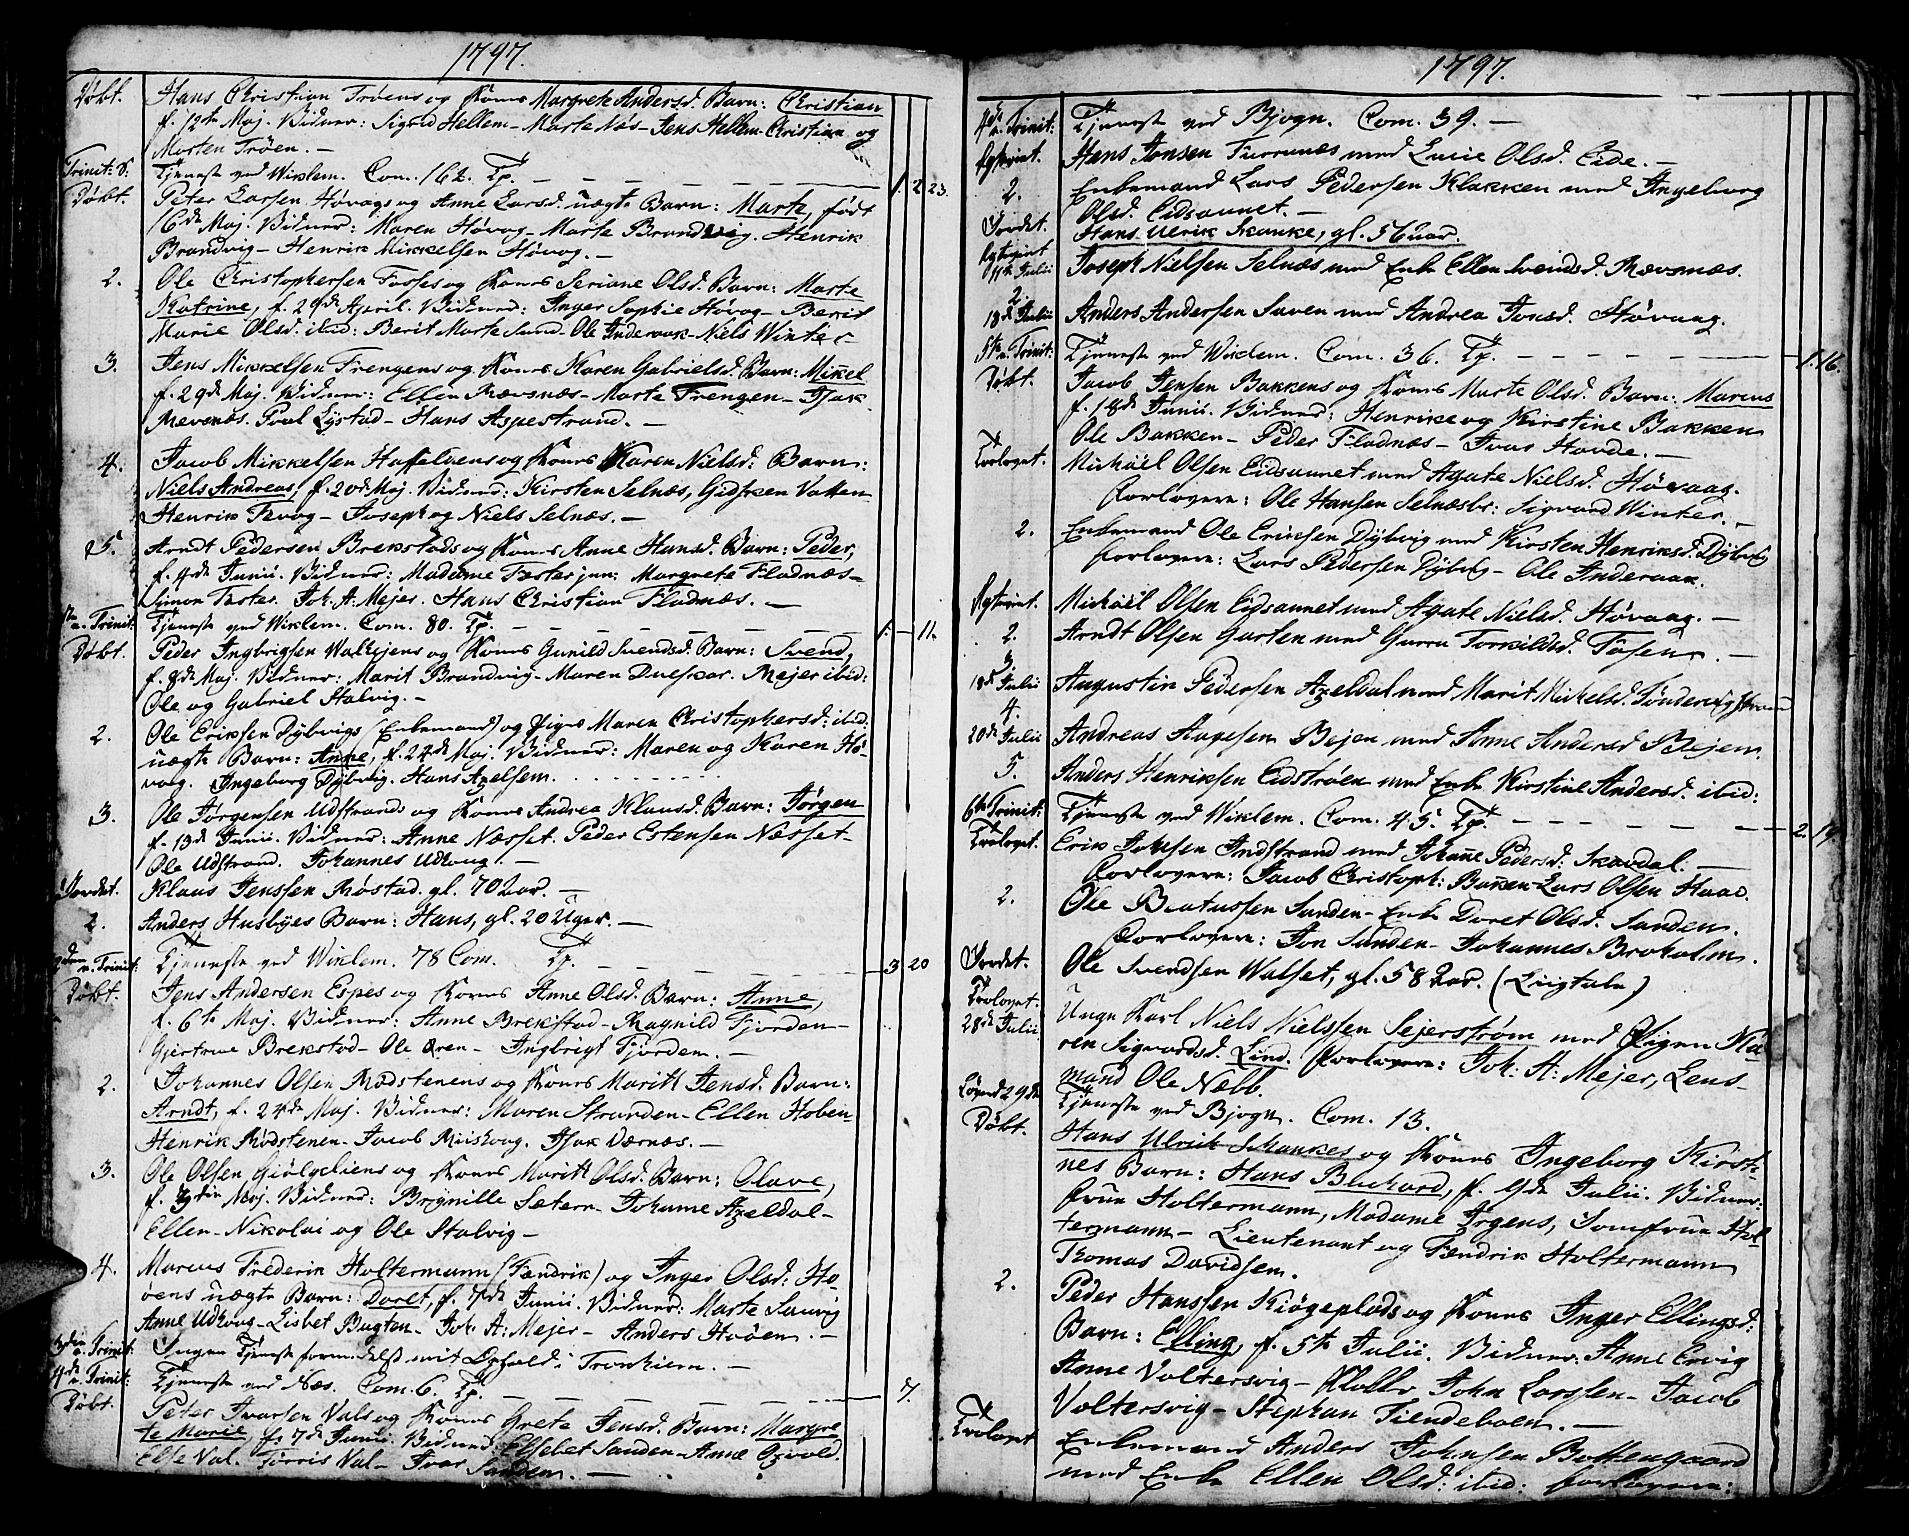 1797.
Døbt. Hans Christian Trøens og Kones Margrete Andersd. Barn: Christian
f. 12te Maj. Vidner: Sigrid Hellem - Marte Næs - Jens Hellem - Christian og
Morten Trøen. -
Trinit: S: Tjeneste ved Wiklem. Com. 162. Tp. - 1. 2 23.
Døbt. Peter Larsen Høvags og Anne Larsd. uægte Barn: Marte, født
16de Maj. Vidner: Maren Høvag - Marte Brandvig. Henrik
Brandvig - Henrik Mikkelsen Høvog. -
2. Ole Christophersen Fosses og Kones Seriane Olsd. Barn: Marte
Katrine, f. 29de April. Vidner: Inger Sophie Høvog - Berit
Marie Olsd. ibid: Berit Marte Sund - Ole Anderaak - Niels Winter -
3. Jens Mikkelsen Frengens og Kones Karen Gabrielsd. Barn: Mikel
f. 29de Maj. Vidner: Ellen Rævsnæs - Marte Frengen - Isak
Rævsnæs. Poul Lystad - Hans Aspestrand. -
4. Jacob Mikkelsen Hasselvens og Kones Karen Nielsd. Barn:
Niels Andreas, f. 20de Maj. Vidner: Kirsten Selnæs, Gidsken Vatten
Henrik - Joseph og Niels Selnæs. -
5. Arndt Pedersen Brekstads og Kones Anne Hansd. Barn: Peder,
f. 4de Junii. Vidner: Madame Fæster jun: Margrete Fladnæs -
Simon Fæster. Joh. A. Mejer. Hans Christian Fladnæs. -
1ste n. Trinit: Tjeneste ved Wiklem. Com. 80. Tp. - 1. - 11.
Døbt. Peder Ingbrigsen Walsejens og Kones Gunild Svendsd. Barn: Svend,
f. 8de Maj. Vidner: Marit Brandvig - Maren Dueskar. Mejer ibid:
Ole og Gabriel Stalvig. -
2. Ole Eriksen Dybvigs (Enkemand) og Pige Maren Christophersd: ibid:
uægte Barn: Anne, f. 24de Maj. Vidner: Maren og Karen Hø-
vag. Ingeborg Dybvig. Hans Axelsen.
3. Ole Jørgensen Udstrands og Kones Andrea Klausd. Barn: Jørgen
f. 13de Junii. Vidner: Anne Næsset. Peder Estensen Næsset -
Ole Udstrand. Johannes Udhoug. -
Jordet. Klaus Jenssen Røstad. gl. 70 Aar. -
2. Anders Husbyes Barn: Hans, gl. 20 Uger. -
2den n. Trinit: Tjeneste ved Wiklem. 78 Com. Tp. - 3 20
Døbt. Jens Andersen Espes og Kones Anne Olsd. Barn: Anne,
f. 6te Maj. Vidner: Anne Brekstad - Ragnild Fjorden -
Gjertrue Brekstad - Ole Øren - Ingbrigt Fjorden. -
2. Johannes Olsen Rødstenens og Kones Maritt Jensd. Barn:
Arndt, f. 24de Maj. Vidner: Maren Stranden - Ellen Hoben -
Henrik Rødstenen - Jacob Ruishaug. Isak Værnæs. -
3. Ole Olsen Giølgeliens og Kones Maritt Olsd. Barn: Olave,
f. Maj. Vidner: Brynille Sætern - Johanne Axeldal -
Ellen - Nikolai og Ole Stalvig -
4. Marcus Frederik Holtermann (Fændrik) og Inger Olsd: Ho-
vens uægte Barn: Doret, f. 7de Junii. Vidner: Marte Sauvig
Anne Udhoug - Lisbet Bugten - Joh. A: Mejer - Anders Hvoen. -
3die n. Trinit: Ingen Tjeneste formedelst mit Ophold i Tronhiem. -
4de n. Trinit: Tjeneste ved Næs. Com. 6. Tp. - 7.
Døbt. Peter Ivarsen Vals og Kones Grete Jensd. Barn: Margre-
te Marie, f. 7de Junii. Vidner: Elsebet Sanden - Anne Opvold.
Else Val. Torris Val - Ivar Sanden. -
1797.
4de n. Trinit: Tjeneste ved Bjogn. Com. 39. -
Egteviet. Hans Jonsen Furrunæs med Lucie Olsd. Eide. -
2. Enkemand Lars Pedersen Klakken med Ingeborg
Olsd. Eidsaunet. -
Jordet. Hans Ulrik Skanke, gl. 56 aar.
Egteviet 11te Julii Joseph Nielsen Selnæs med Enke Ellen Svendsd. Rævsnæs.
2. 18de Julii Anders Andersen Saven med Andrea Jonsd. Høvaag.
5te n. Trinit: Tjeneste ved Wiklem. Com. 36. Tp. - 1. 16.
Døbt. Jacob Jensen Bakkens og Kones Marte Olsd. Barn: Marcus
f. 18de Junii. Vidner: Henrike og Kirstine Bakken
Ole Bakken - Peder Fladnæs - Ivar Hovde. -
Trolovet. Michael Olsen Eidsaunet med Agate Nielsd. Høvaag.
Forlovere: Ole Hansen Selnæsbr: Sigvard Winter. -
2. Enkemand Ole Eriksen Dybvig med Kirsten Henriksd. Dybvig
forlovere: Lars Pedersen Dybvig - Ole Anderaak.
Egteviet. Michael Olsen Eidsaunet med Agate Nielsd. Høvaag. -
2. Arndt Olsen Garten med Gurru Torkildsd. Fosen. -
3. 18de Julii Augustin Pedersen Axeldal med Marit Mickelsd. Sønder
4. 20de Julii Andreas Aagesen Bejen med Anne Andersd Bejen.
5. Anders Henriksen Eidstrøen med Enke Kirstine Andersd. ibid:
6te Trinit: Tjeneste ved Wiklem. Com. 45. Tp. - 2. 19.
Trolovet. Erik Johsen Indstrand med Johanne Pedersd. Skavdal. -
Forlovere: Jacob Christoph: Bakken - Lars Olsen Haae.
2. Ole Beatussen Sanden - Enke Doret Olsd. Sanden.
Forlovere: Jon Sanden - Johannes Broholm.
Jordet. Ole Svendsen Walset, gl. 58 Aar. (Liigtale)
Trolovet. 28de Julii Unge Karl Niels Nielssen Sejerstrøm med Pigen Ka-
ren Sigvardsd. Lind. Forlovere: Joh: A: Mejer, Lens-
mand Ole Nebb.
Løverd 29de Tjeneste ved Bjogn. Com. 13.
Døbt. Hans Ulrich Skankes og Kones Ingeborg Kirsti-
nes Barn: Hans Buchard, f. 9de Julii. Vidner:
Frue Holtermann, Madame Irgens, Jomfrue Hol-
termann - Lieutenant og Fændrik Holtermann
Thomas Davidsen.
2. Peder Hanssen Kiøgeplads og Kones Inger Ellingsd:
Barn: Elling, f. 5te Julii. Vidner: Anne Ervig
Anne Voltersvig - Klokker John Larssen - Jacob
Voltersvig - Stephan Tiendeboen. -
Trolovet Enkemand Anders Johnsen Bottengaard
med Enke Ellen Olsd: ibid: forlovere: